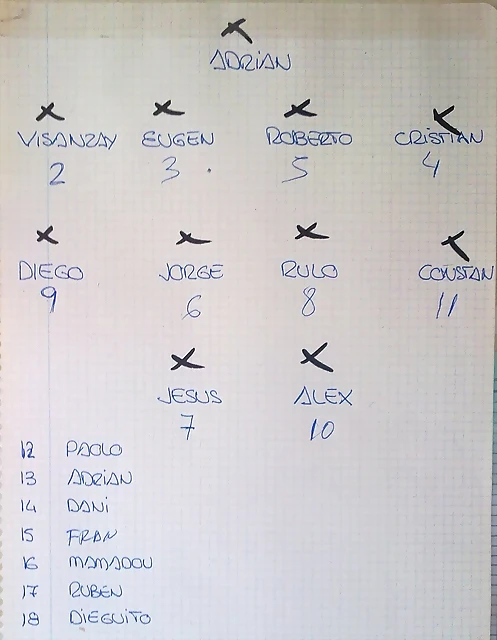 ADRIAN
VISANZAY EUGEN ROBERTO CRISTIAN
2 3 5 4
DIEGO JORGE RULO CONSTAN
9 6 8 11
JESUS ALEX
7 10
12 PAOLO
13 ADRIAN
14 DANI
15 FRAN
16 MAMADOU
17 RUBEN
18 DIEGUITO